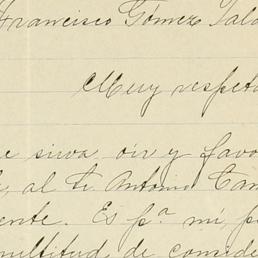 Francisco Gómez
Muy respeta
e sirva oir y favo
al Sr. Antonio
ente. Es pª mi, p
multitud de conside